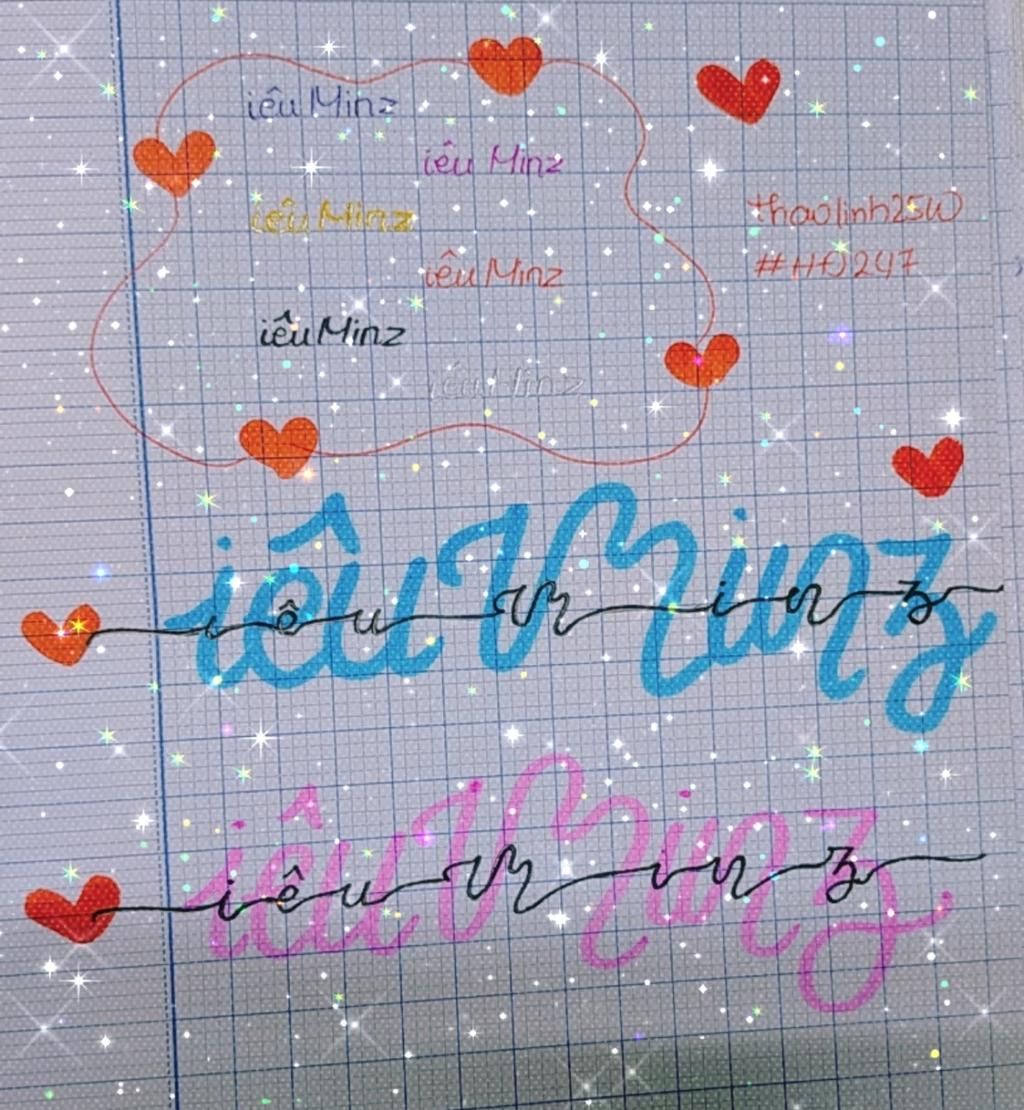 iêu Minz
iêu Minz
iêu Minz
thaolinh25W
iêu Minz
#HĐ247
iêu Minz
iêu Minz
iêu Minz
iêu Minz
iêu Minz
iêu Minz